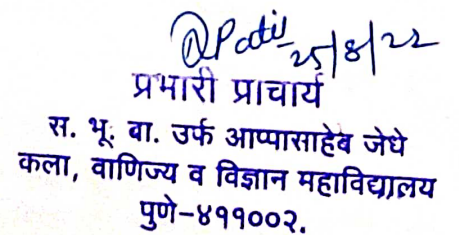 Patil 25/8/22
प्रभारी प्राचार्य
स. भू. बा. उर्फ आप्पासाहेब जेधे
कला, वाणिज्य व विज्ञान महाविद्यालय
पुणे-४११००२.